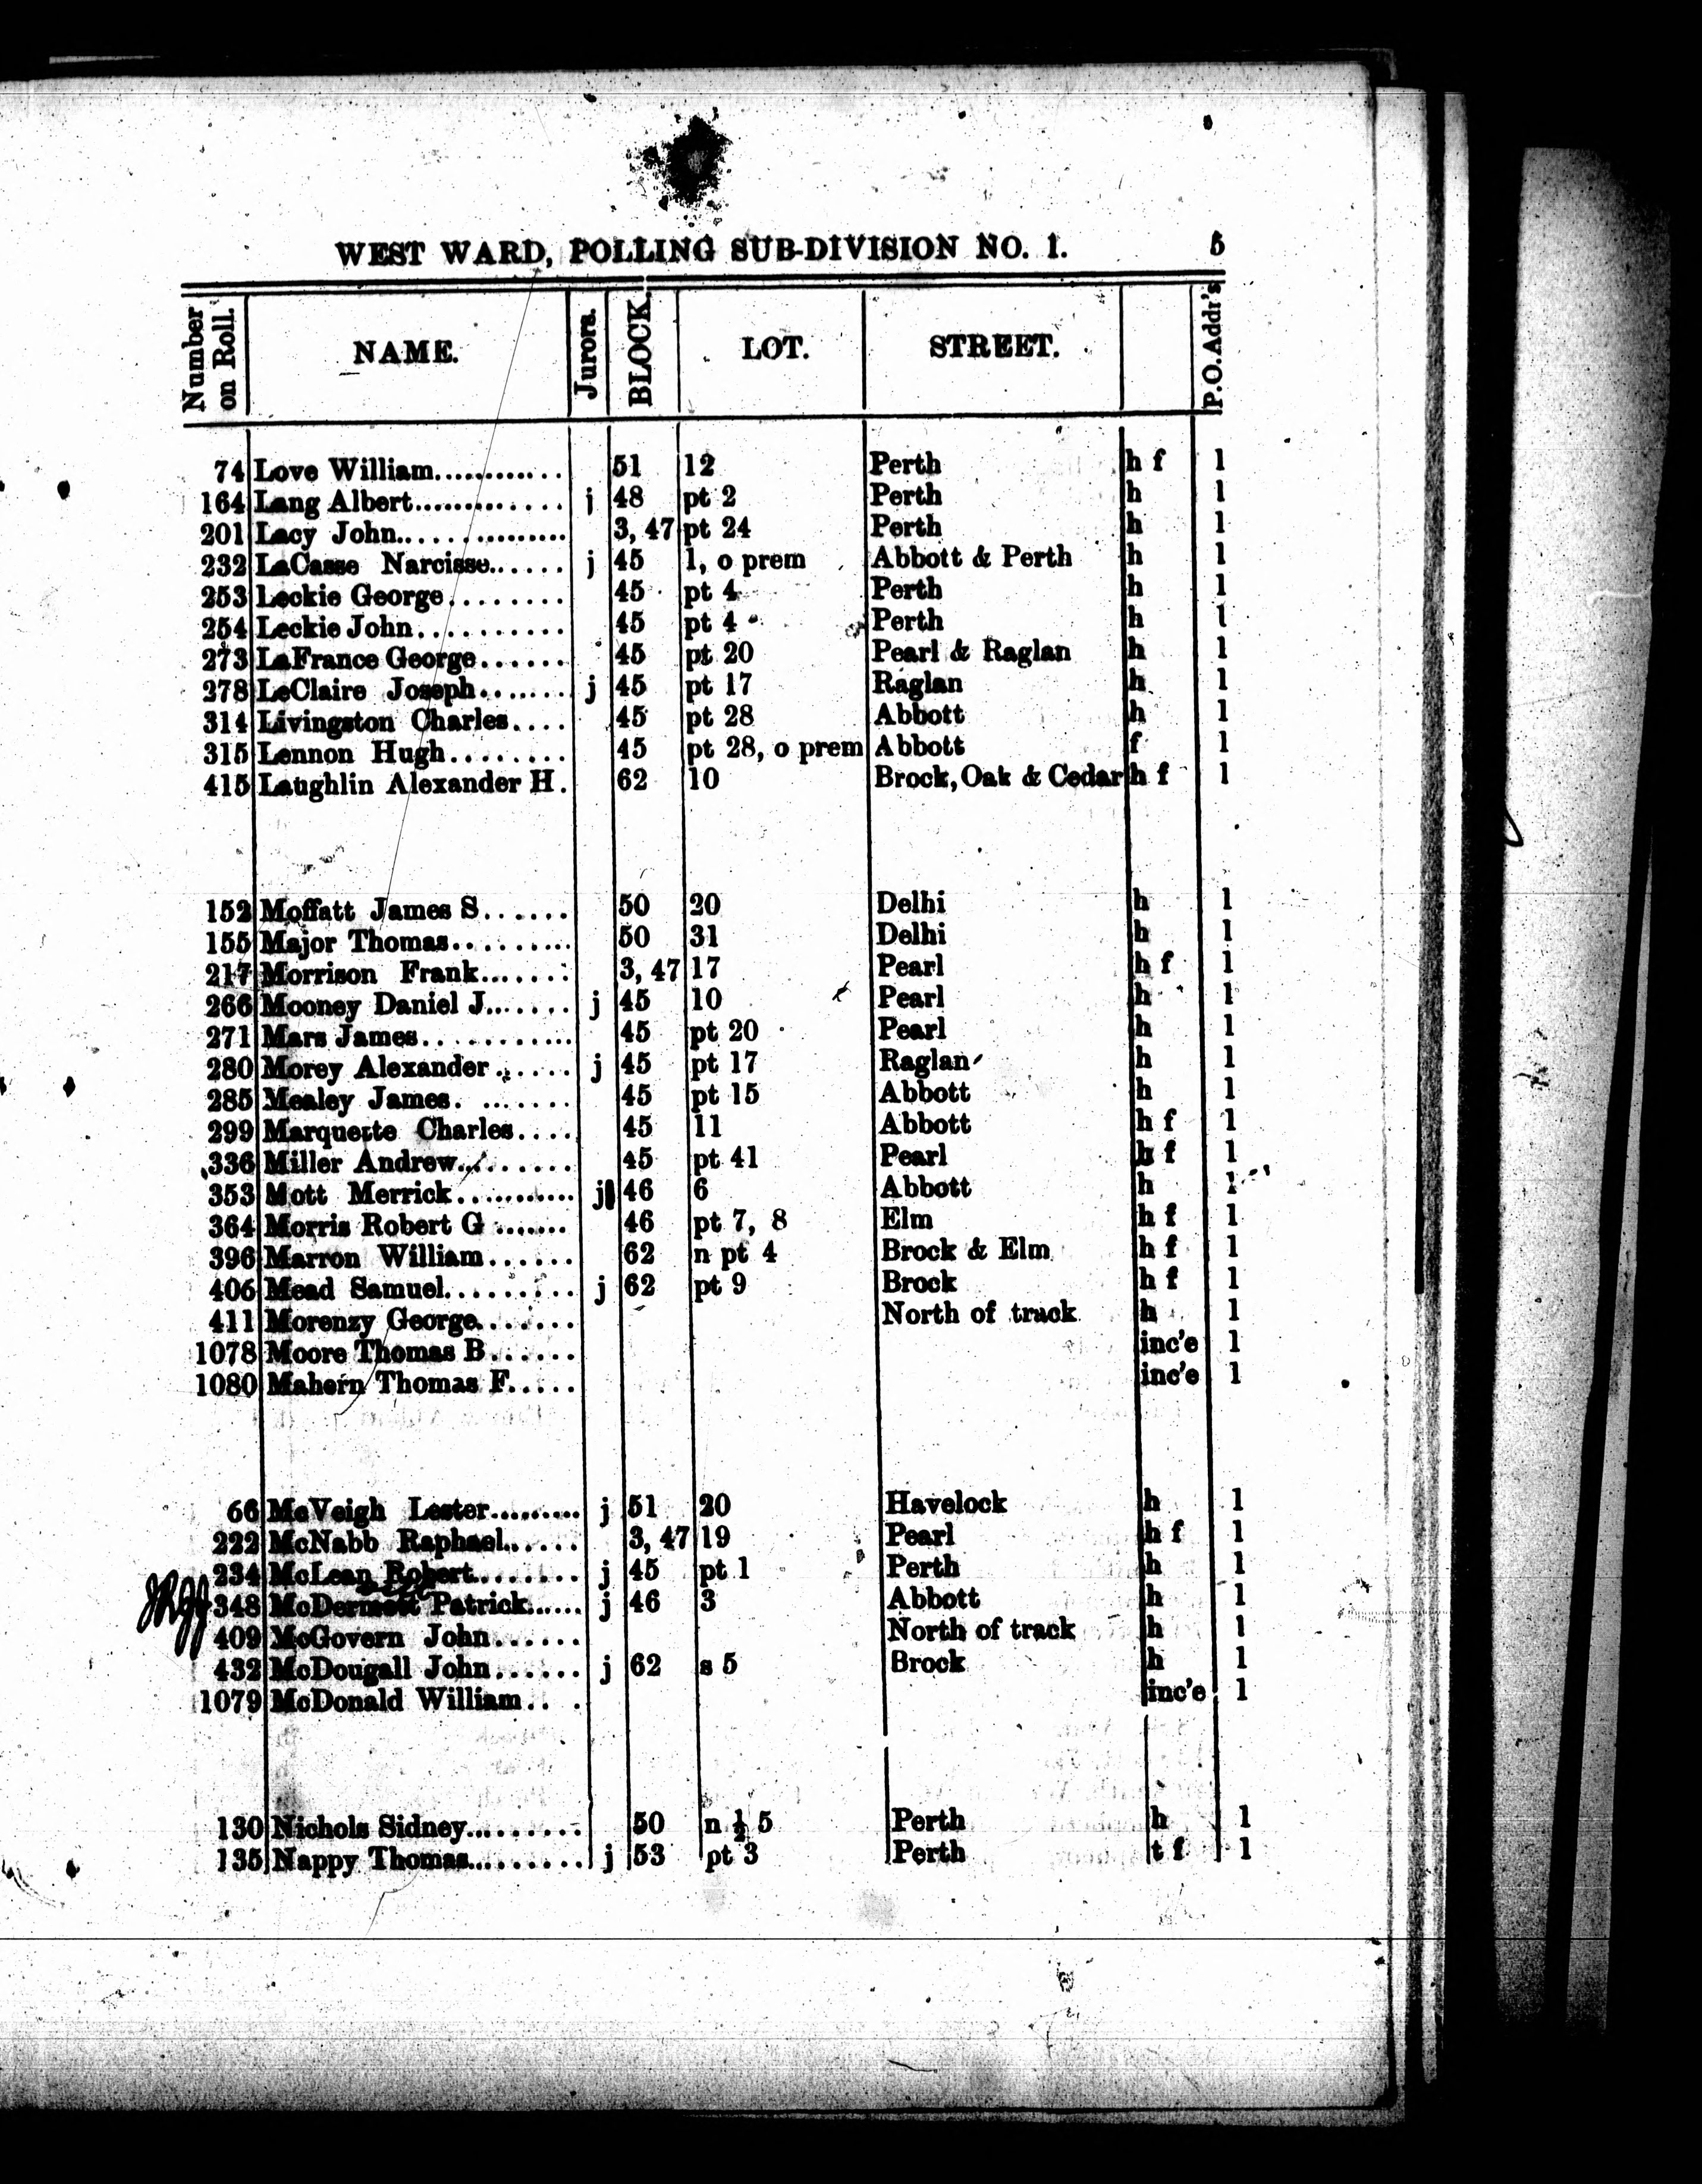 WEST WARD, POLLING SUB-DIVISION NO. 1. 5
Number on Roll. NAME. Jurors. BLOCK. LOT. STREET. P.O. Addr's
74 Love William............ 51 12 Perth h f 1
164 Lang Albert............. j 48 pt 2 Perth h 1
201 Lacy John............... 3, 47 pt 24 Perth h 1
232 LaCasse Narcisse...... j 45 1, o prem Abbott & Perth h 1
253 Leckie George........ 45 pt 4 Perth h 1
254 Leckie John.......... 45 pt 4 Perth h 1
273 LaFrance George...... 45 pt 20 Pearl & Raglan h 1
278 LeClaire Joseph....... j 45 pt 17 Raglan h 1
314 Livingston Charles.... 45 pt 28 Abbott h 1
315 Lennon Hugh........ 45 pt 28, o prem Abbott f 1
415 Laughlin Alexander H. 62 10 Brock, Oak & Cedar h f 1
152 Moffatt James S...... 50 20 Delhi h 1
155 Major Thomas.......... 50 31 Delhi h 1
217 Morrison Frank....... 3, 47 17 Pearl h f 1
266 Mooney Daniel J....... j 45 10 Pearl h 1
271 Mars James............ 45 pt 20 Pearl h 1
280 Morey Alexander ...... j 45 pt 17 Raglan h 1
285 Mealey James. ....... 45 pt 15 Abbott h 1
299 Marquette Charles.... 45 11 Abbott h f 1
336 Miller Andrew......... 45 pt 41 Pearl h f 1
353 Mott Merrick........... j 46 6 Abbott h 1
364 Morris Robert G ....... 46 pt 7, 8 Elm h f 1
396 Marron William...... 62 n pt 4 Brock & Elm h f 1
406 Mead Samuel......... j 62 pt 9 Brock h f 1
411 Morenzy George....... North of track h 1
1078 Moore Thomas B...... inc'e 1
1080 Mahern Thomas F..... inc'e 1
66 McVeigh Lester......... j 51 20 Havelock h 1
222 McNabb Raphael...... 3, 47 19 Pearl h f 1
234 McLean Robert........ j 45 pt 1 Perth h 1
348 McDermott Patrick...... j 46 3 Abbott h 1
409 McGovern John...... North of track h 1
432 McDougall John...... j 62 s 5 Brock h 1
1079 McDonald William.. . inc'e 1
130 Nichols Sidney......... 50 n ½ 5 Perth h 1
135 Nappy Thomas.......... j 53 pt 3 Perth t f 1